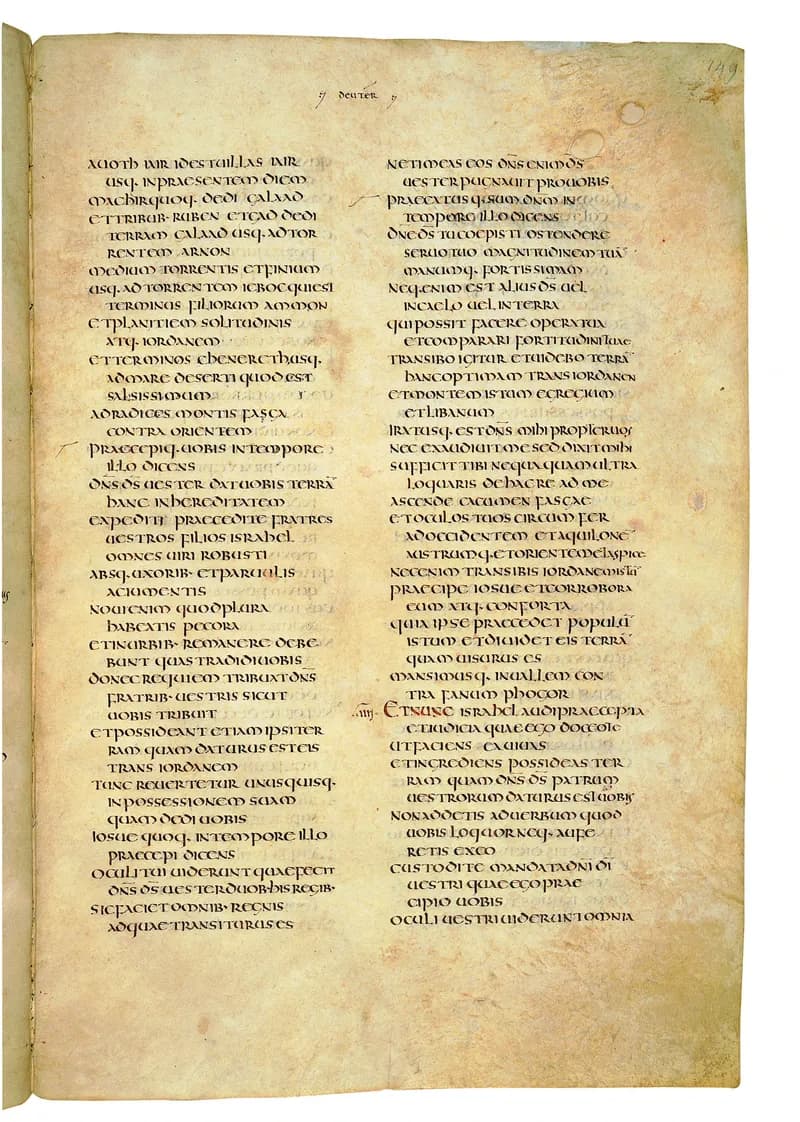 149
deuter
auoth iair id est uillas iair
usq. in praesentem diem
machir quoq. dedi galaad
et tribub. ruben et gad dedi
terram galaad usq. ad tor
rentem arnon
medium torrentis et finium
usq. ad torrentem ieboc qui est
terminus filiorum ammon
et planitiem solitudinis
atq. iordanem
et terminos chenereth usq.
ad mare deserti quod est
salsissimum
ad radices montis fasga
contra orientem
praecepiq. uobis in tempore
illo dicens
dn̄s d̄s uester dat uobis terrā
hanc in hereditatem
expediti praecedite fratres
uestros filios israhel
omnes uiri robusti
absq. uxorib. et paruulis
ac iumentis
noui enim quod plura
habeatis pecora
et in urbib. remanere debe
bunt quas tradidi uobis
donec requiem tribuat dn̄s
fratrib. uestris sicut
uobis tribuit
et possideant etiam ipsi ter
ram quam daturus est eis
trans iordanem
tunc reuertetur unusquisq.
in possessionem suam
quam dedi uobis
iosue quoq. in tempore illo
praecepi dicens
oculi tui uiderunt quae fecit
dn̄s d̄s uester duob. his regib.
sic faciet omnib. regnis
ad quae transiturus es
ne timeas eos dn̄s enim d̄s
uester pugnauit pro uobis
praecatusq. sum dn̄m in
tempore illo dicens
dn̄e d̄s tu coepisti ostendere
seruo tuo magnitudinem tuā
manumq. fortissimam
neq. enim est alius d̄s uel
in caelo uel in terra
qui possit facere opera tua
et comparari fortitudini tuae
transibo igitur et uidebo terrā
hanc optimam trans iordanen
et montem istum egregium
et libanum
iratusq. est dn̄s mihi propter uos
nec exaudiuit me sed dixit mihi
sufficit tibi nequaquam ultra
loquaris de hac re ad me
ascende cacumen fasgae
et oculos tuos circumfer
ad occidentem et aquilonē
austrumq. et orientem et aspice
nec enim transibis iordanem istū
praecipe iosue et corrobora
eum atq. conforta
quia ipse praecedet populū
istum et diuidet eis terrā
quam uisurus es
mansimusq. in uallem con
tra fanum phogor
iiii. Et nunc israhel audi praecepta
et iudicia quae ego doceo te
ut faciens ea uiuas
et ingrediens possideas ter
ram quam dn̄s d̄s patrum
uestrorum daturus est uobis
non addetis ad uerbum quod
uobis loquor neq. aufe
retis ex eo
custodite mandata dn̄i dī
uestri quae ego prae
cipio uobis
oculi uestri uiderunt omnia